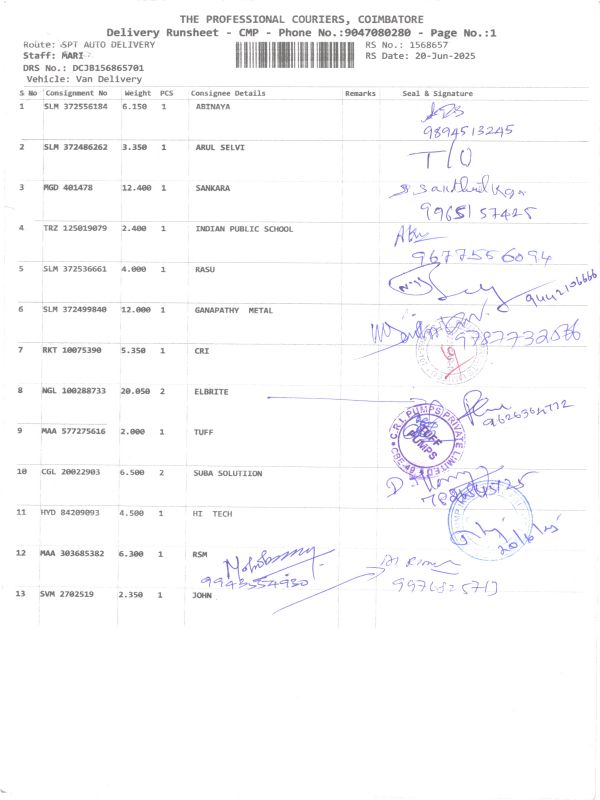 THE PROFESSIONAL COURIERS, COIMBATORE
Delivery Runsheet - CMP - Phone No.:9047080280 - Page No.:1
Route: SPT AUTO DELIVERY RS No.: 1568657
Staff: MARI RS Date: 20-Jun-2025
DRS No.: DCJB156865701
Vehicle: Van Delivery
S No Consignment No Weight PCS Consignee Details Remarks Seal & Signature
1 SLM 372556184 6.150 1 ABINAYA
9894513245
2 SLM 372486262 3.350 1 ARUL SELVI T/O
3 MGD 401478 12.400 1 SANKARA
9965157425
4 TRZ 125019079 2.400 1 INDIAN PUBLIC SCHOOL
9677556094
5 SLM 372536661 4.000 1 RASU
9442106666
6 SLM 372499840 12.000 1 GANAPATHY METAL
9787732066
7 RKT 10075390 5.350 1 CRI
8 NGL 100288733 20.050 2 ELBRITE
9626364772
9 MAA 577275616 2.000 1 TUFF
C.R.I. PUMPS PRIVATE LIMITED
TUFF
PUMPS
CBE-49
10 CGL 20022903 6.500 2 SUBA SOLUTIION
11 HYD 84209093 4.500 1 HI TECH
20/6/25
12 MAA 303685382 6.300 1 RSM
9943554930
13 SVM 2702519 2.350 1 JOHN